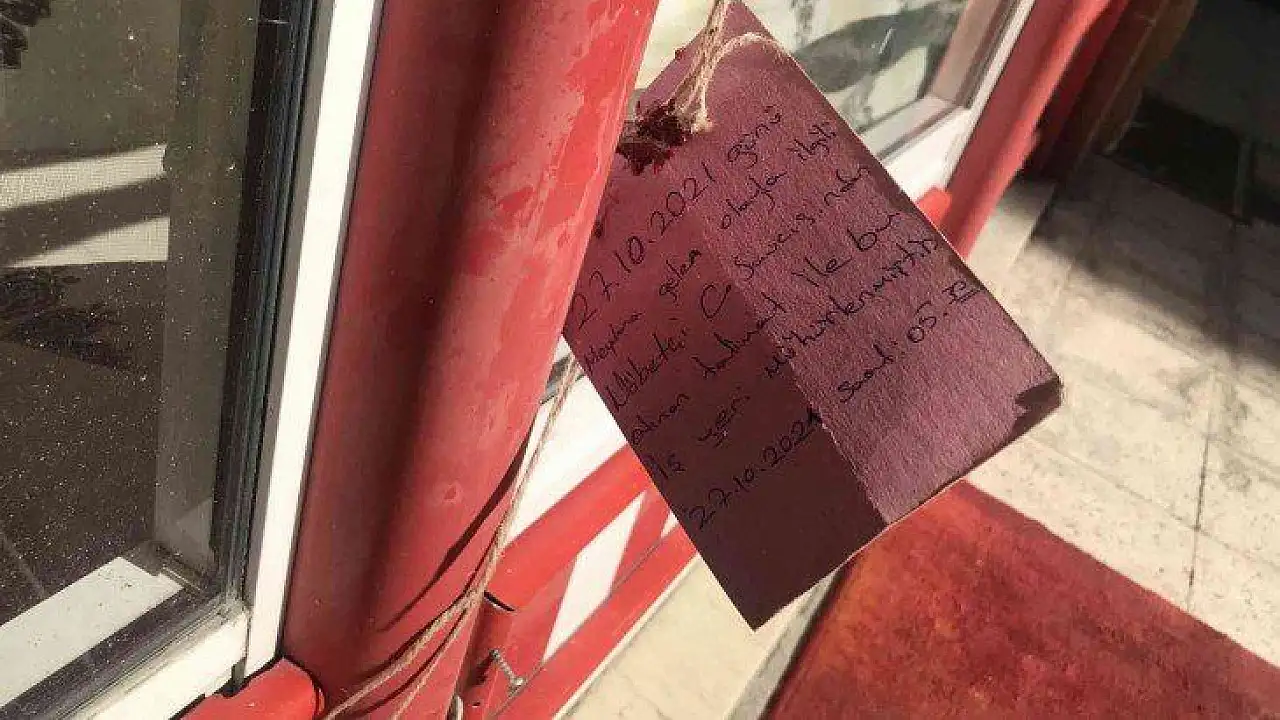 27.10.2021 günü
Meydana gelen olayla ilgili
Nöbetçi C. Savcısından
alınan talimat ile bu
iş yeri mühürlenmiştir.
27.10.2021 Saat: 05.30